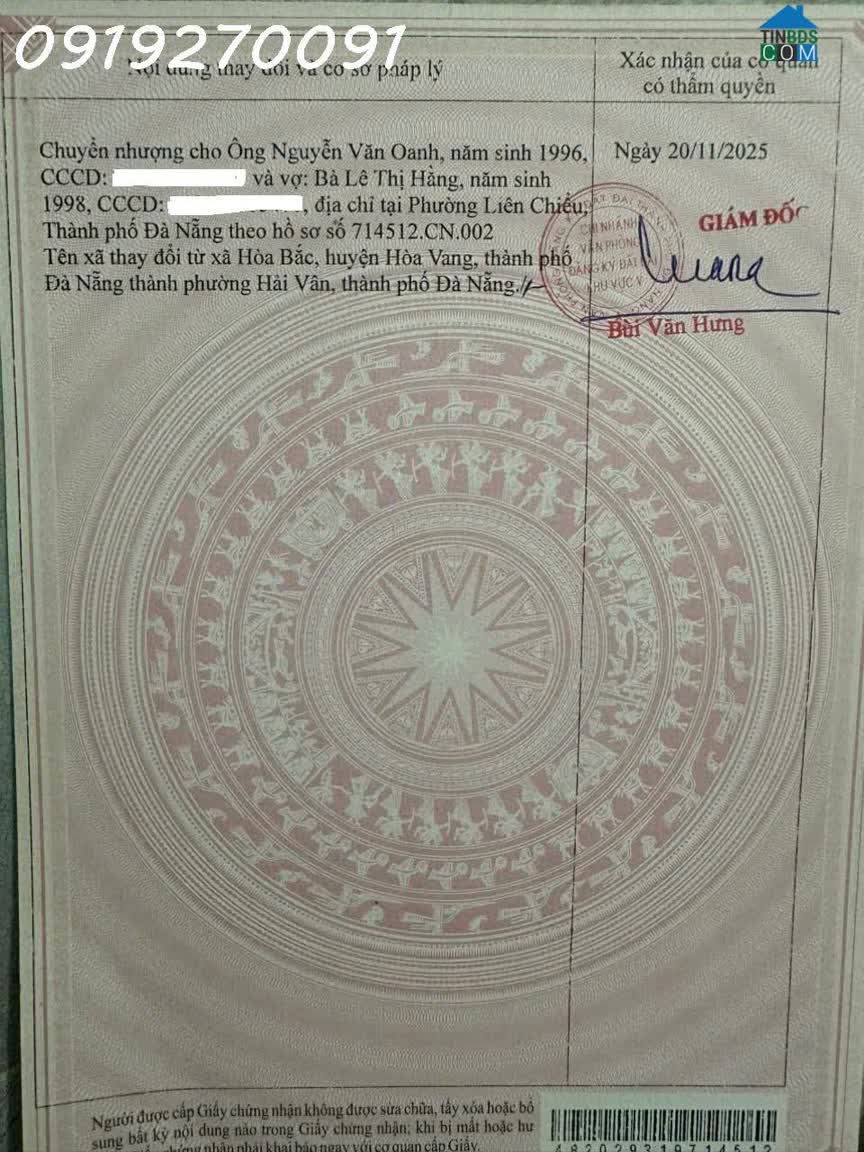 0919270091
TINBDS
COM
Nội dung thay đổi và cơ sở pháp lý
Xác nhận của cơ quan
có thẩm quyền
Chuyển nhượng cho Ông Nguyễn Văn Oanh, năm sinh 1996,
CCCD: và vợ: Bà Lê Thị Hằng, năm sinh
1998, CCCD: , địa chỉ tại Phường Liên Chiểu,
Thành phố Đà Nẵng theo hồ sơ số 714512.CN.002
Tên xã thay đổi từ xã Hòa Bắc, huyện Hòa Vang, thành phố
Đà Nẵng thành phường Hải Vân, thành phố Đà Nẵng./.
Ngày 20/11/2025
GIÁM ĐỐC
CHI NHÁNH
VĂN PHÒNG
ĐĂNG KÝ ĐẤT ĐAI
KHU VỰC V
Bùi Văn Hưng
Người được cấp Giấy chứng nhận không được sửa chữa, tẩy xóa hoặc bổ
sung bất kỳ nội dung nào trong Giấy chứng nhận; khi bị mất hoặc hư
chứng nhận phải khai báo ngay với cơ quan cấp Giấy.
482029319714512